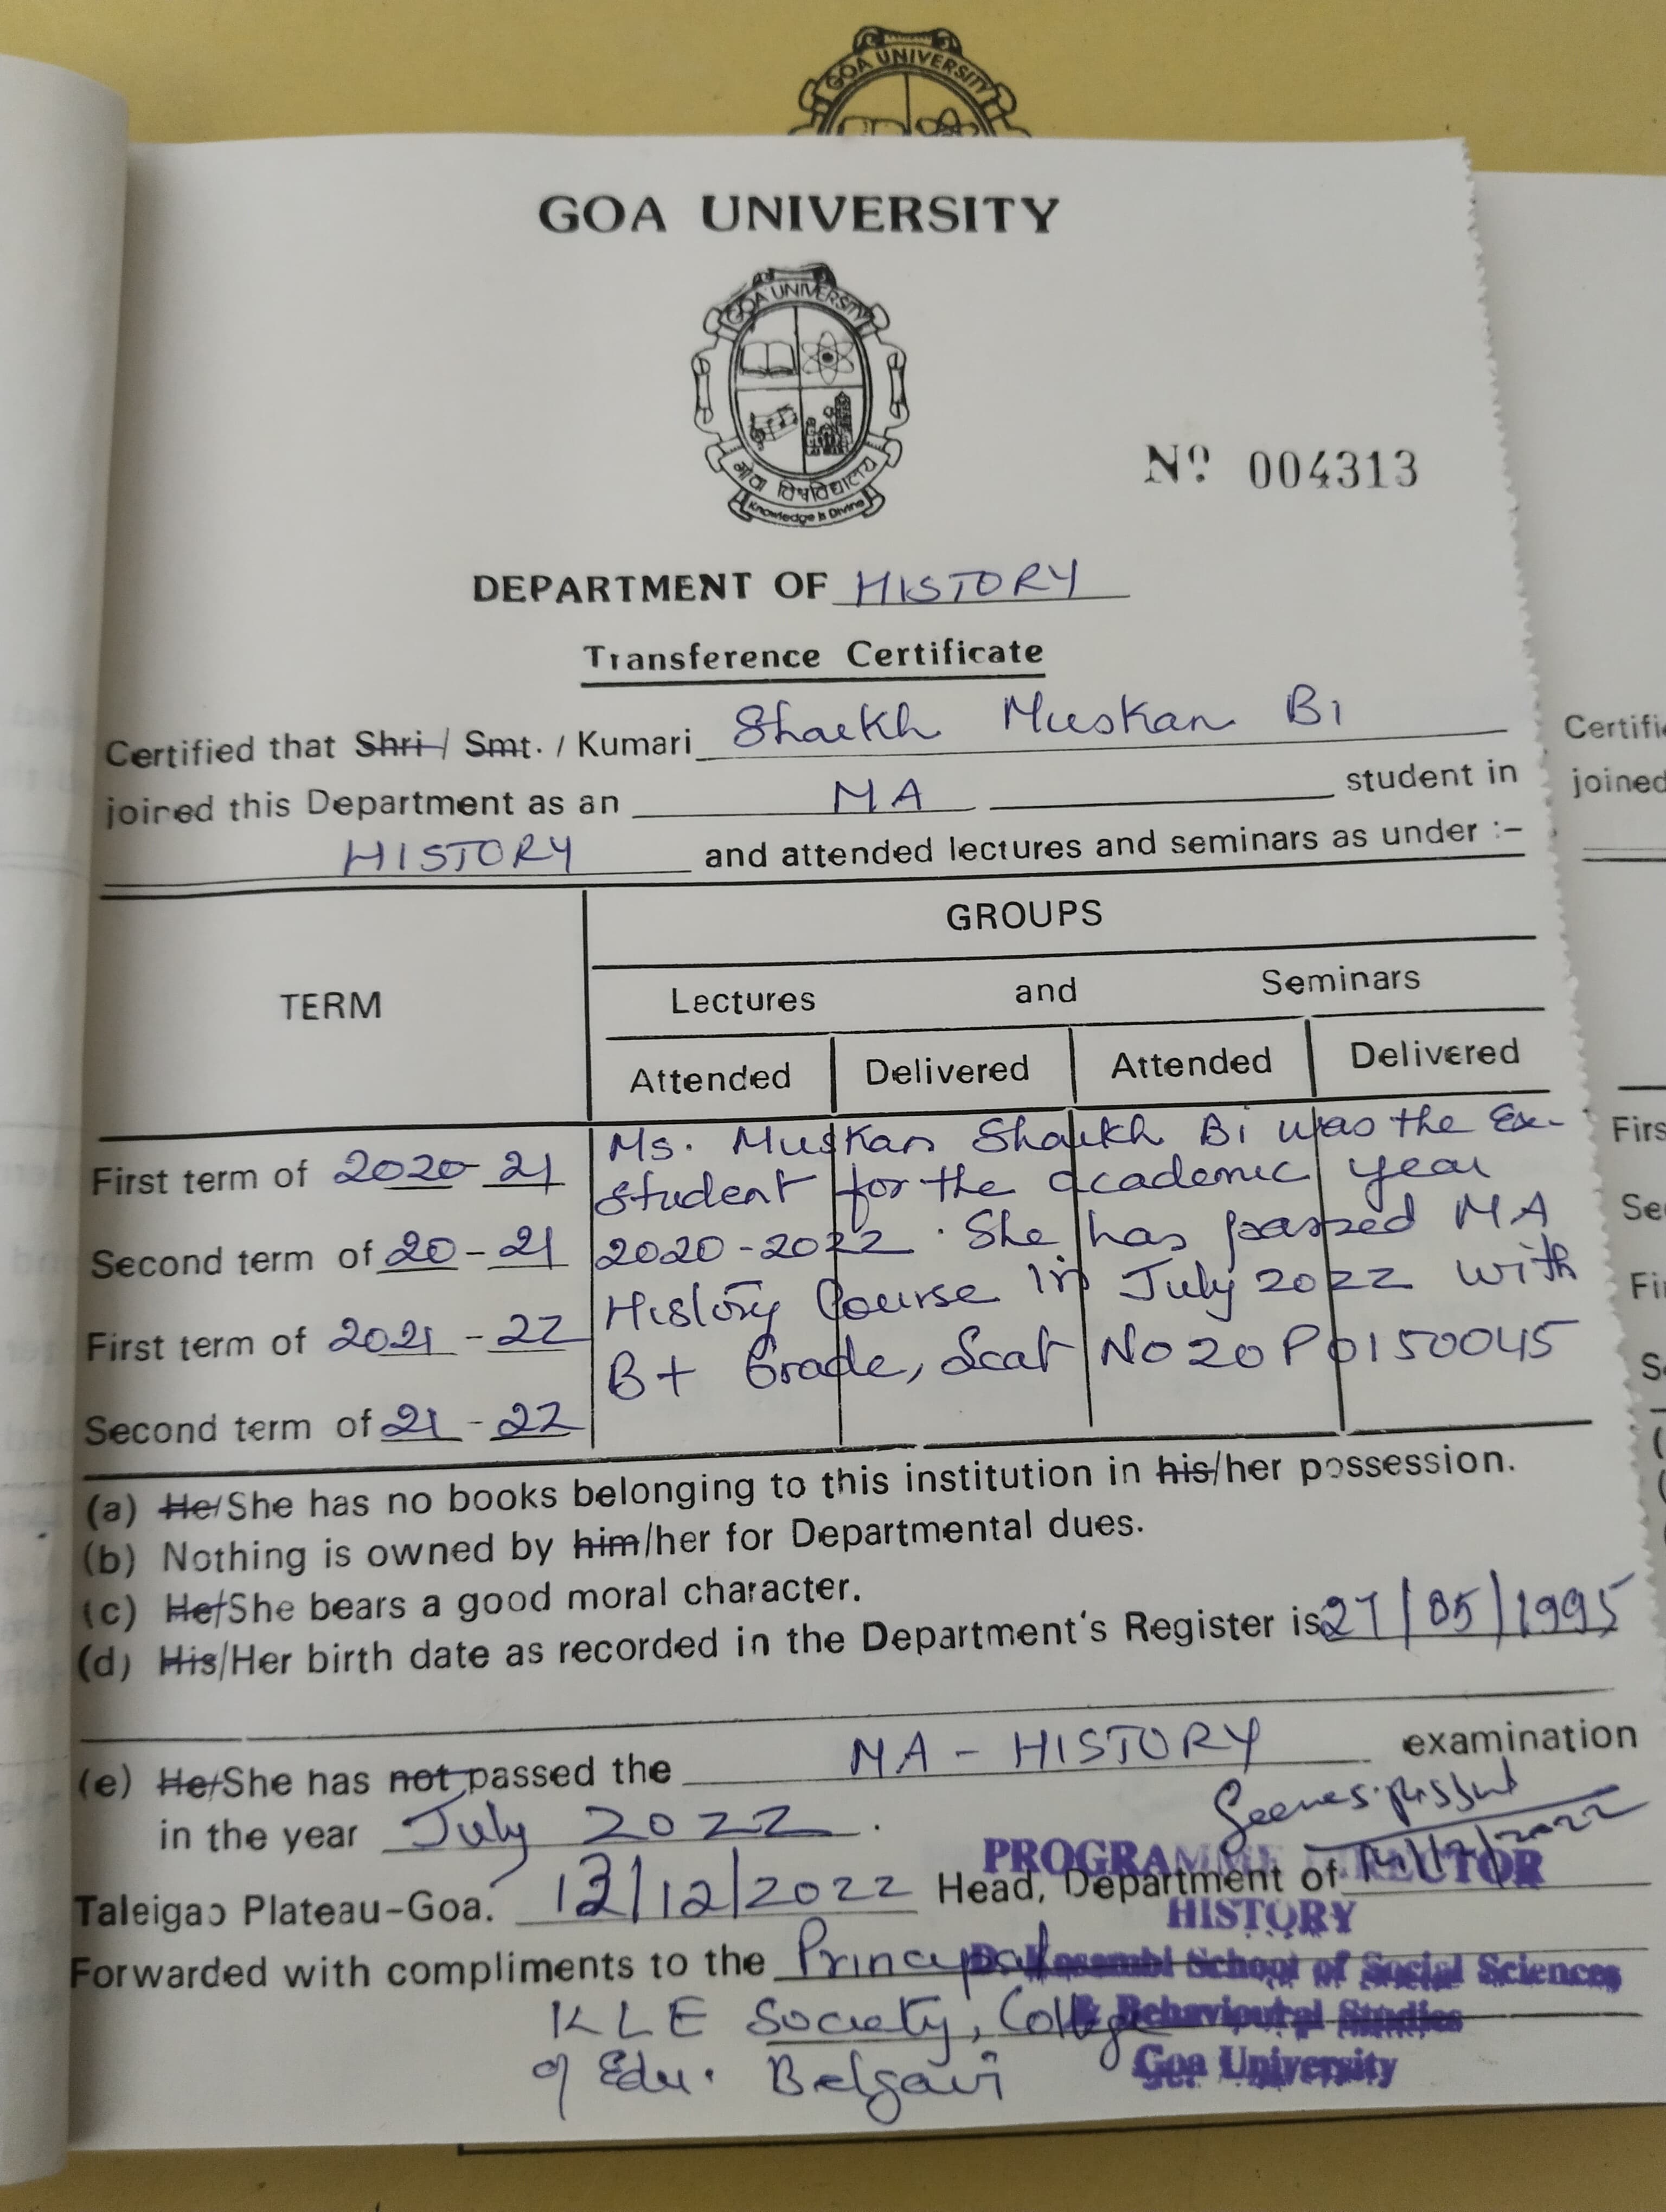 GOA UNIVERSITY
GOA UNIVERSITY
GOA UNIVERSITY
गोवा विश्वविद्यालय
Knowledge is Divine
Nº 004313
DEPARTMENT OF HISTORY
Transference Certificate
Certified that Shri / Smt. / Kumari Shaikh Muskan Bi
joined this Department as an MA student in
HISTORY and attended lectures and seminars as under :–
TERM
GROUPS
Lectures and Seminars
Attended Delivered Attended Delivered
First term of 2020-21
Second term of 20-21
First term of 2021-22
Second term of 21-22
Ms. Muskan Shaikh Bi was the Ex-
student for the academic year
2020-2022. She has passed MA
History Course in July 2022 with
B+ Grade, Seat No 20P0150045
(a) He/She has no books belonging to this institution in his/her possession.
(b) Nothing is owned by him/her for Departmental dues.
(c) He/She bears a good moral character.
(d) His/Her birth date as recorded in the Department's Register is 27/05/1995
(e) He/She has not passed the MA - HISTORY examination
in the year July 2022.
Taleigao Plateau-Goa. 13/12/2022 Head, Department of
PROGRAMME DIRECTOR
HISTORY
Forwarded with compliments to the Principal
KLE Society, College
of Edu. Belgavi
D. Kosambi School of Social Sciences
& Behavioural Studies
Goa University
Certifi
joined
Firs